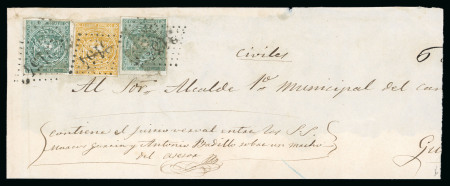 Civiles
6
Al Sor. Alcalde 1o. Municipal del can
contiene el juicio verval entre los S.S.
marcos garcia y Antonio Badillo sobre un macho
del
Gu